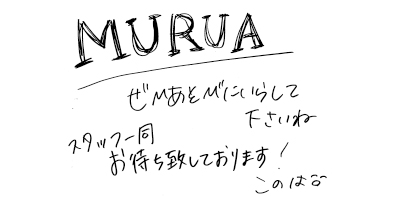 MURUA
ぜひあそびにいらして
下さいね
スタッフ一同
お待ち致しております!
このは